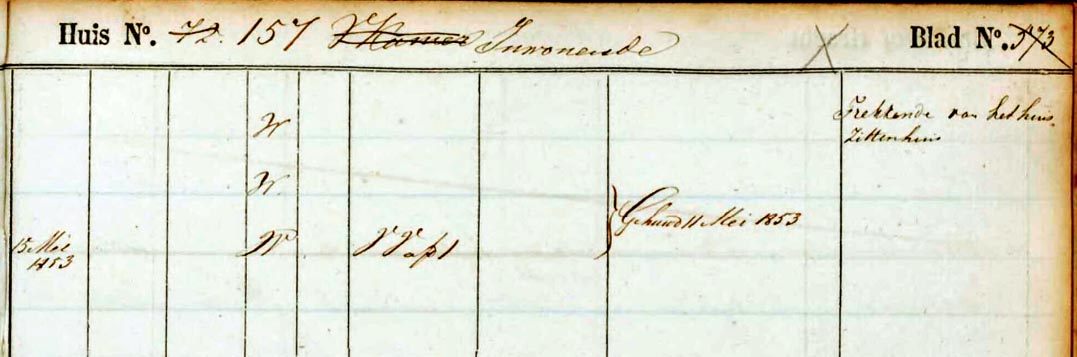 Huis No. 72. 157 VKamer Inwonende Blad No. 573
W
Trekkende van het huis
zittenhuis
W
Gehuwd 11 Mei 1853
15 Mei
1853
W